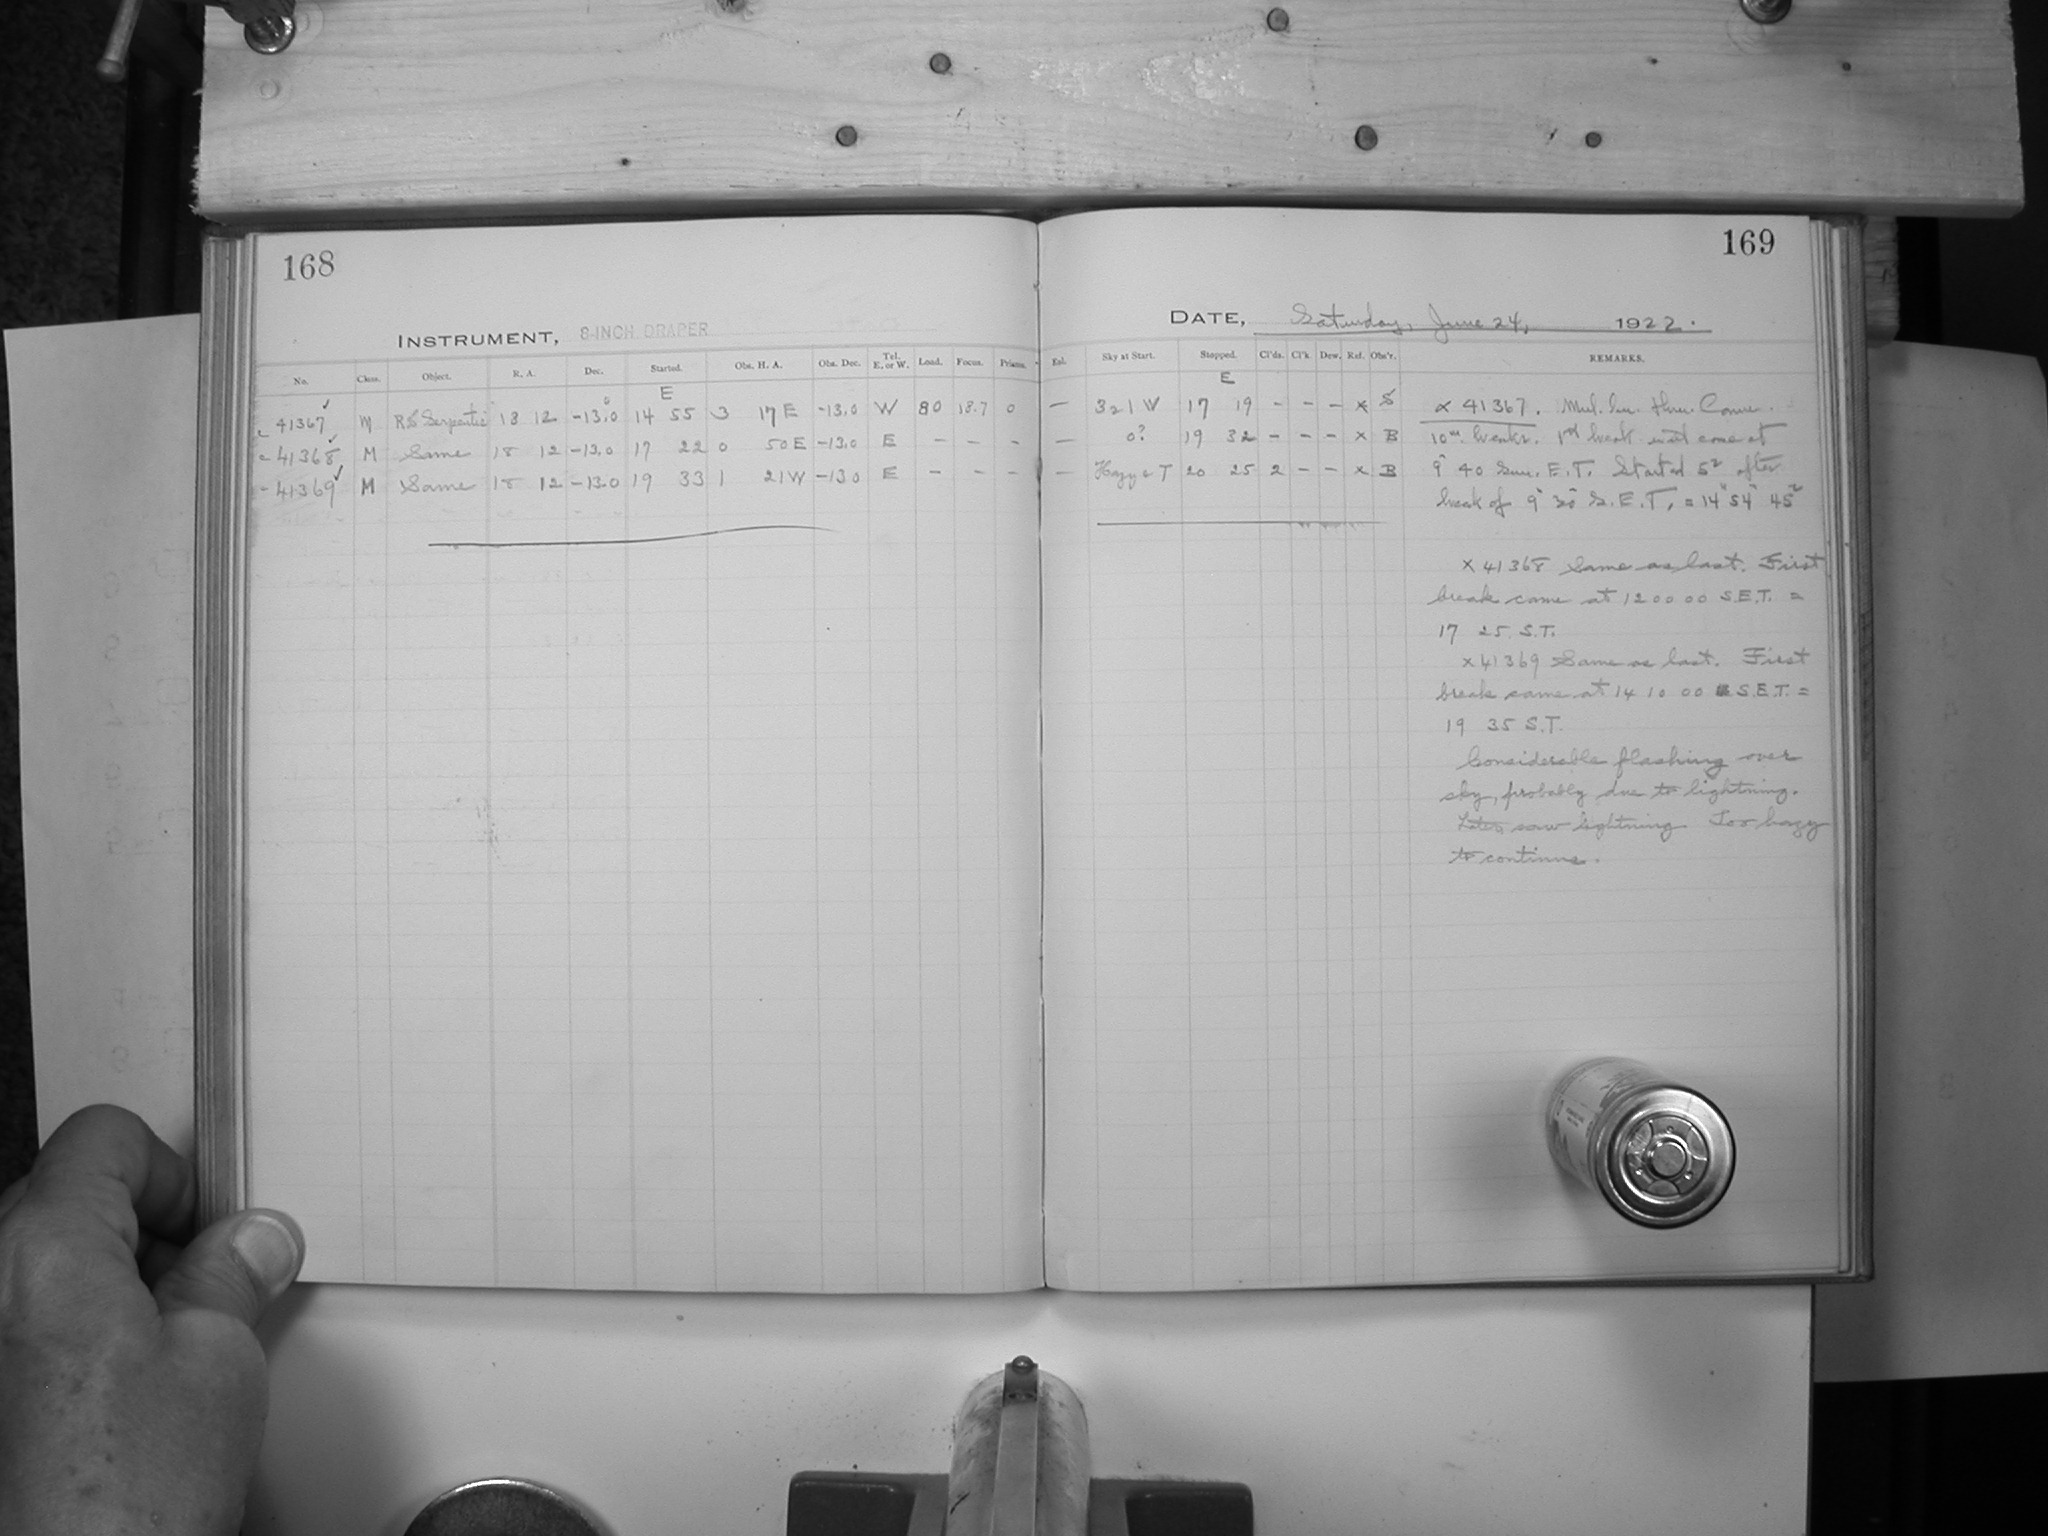 168
INSTRUMENT, 8-INCH DRAPER
No. Class. Object. R. A. Dec. Started. Obs. H. A. Obs. Dec. Tel. E. or W. Load. Focus. Prisms.
E
41367 M RS Serpentis 18 12 -13.0 14 55 3 17 E -13.0 W 80 18.7 0
41368 M Same 18 12 -13.0 17 22 0 50 E -13.0 E - - -
41369 M Same 18 12 -13.0 19 33 1 21 W -13.0 E - - -
169
DATE, Saturday, June 24, 1922.
Sky at Start. Stopped. Cl'ds. Cl'k. Dew. Ref. Obs'r. REMARKS.
E
— 321 W 17 19 - - - x S
— 0? 19 32 - - - x B
— Hazy 20 25 2 - - x B
41367.
10m. breaks. 1st break
9 40 E.T. Started 5s after
break of 9 30 E.T. = 14 54 45
x 41368 Same as last. First
break came at 12 00 00 S.E.T. =
17 25 S.T.
x 41369 Same as last. First
break came at 14 10 00 S.E.T. =
19 35 S.T.
Considerable flashing over
sky, probably due to lightning.
Later saw lightning. Too hazy
to continue.